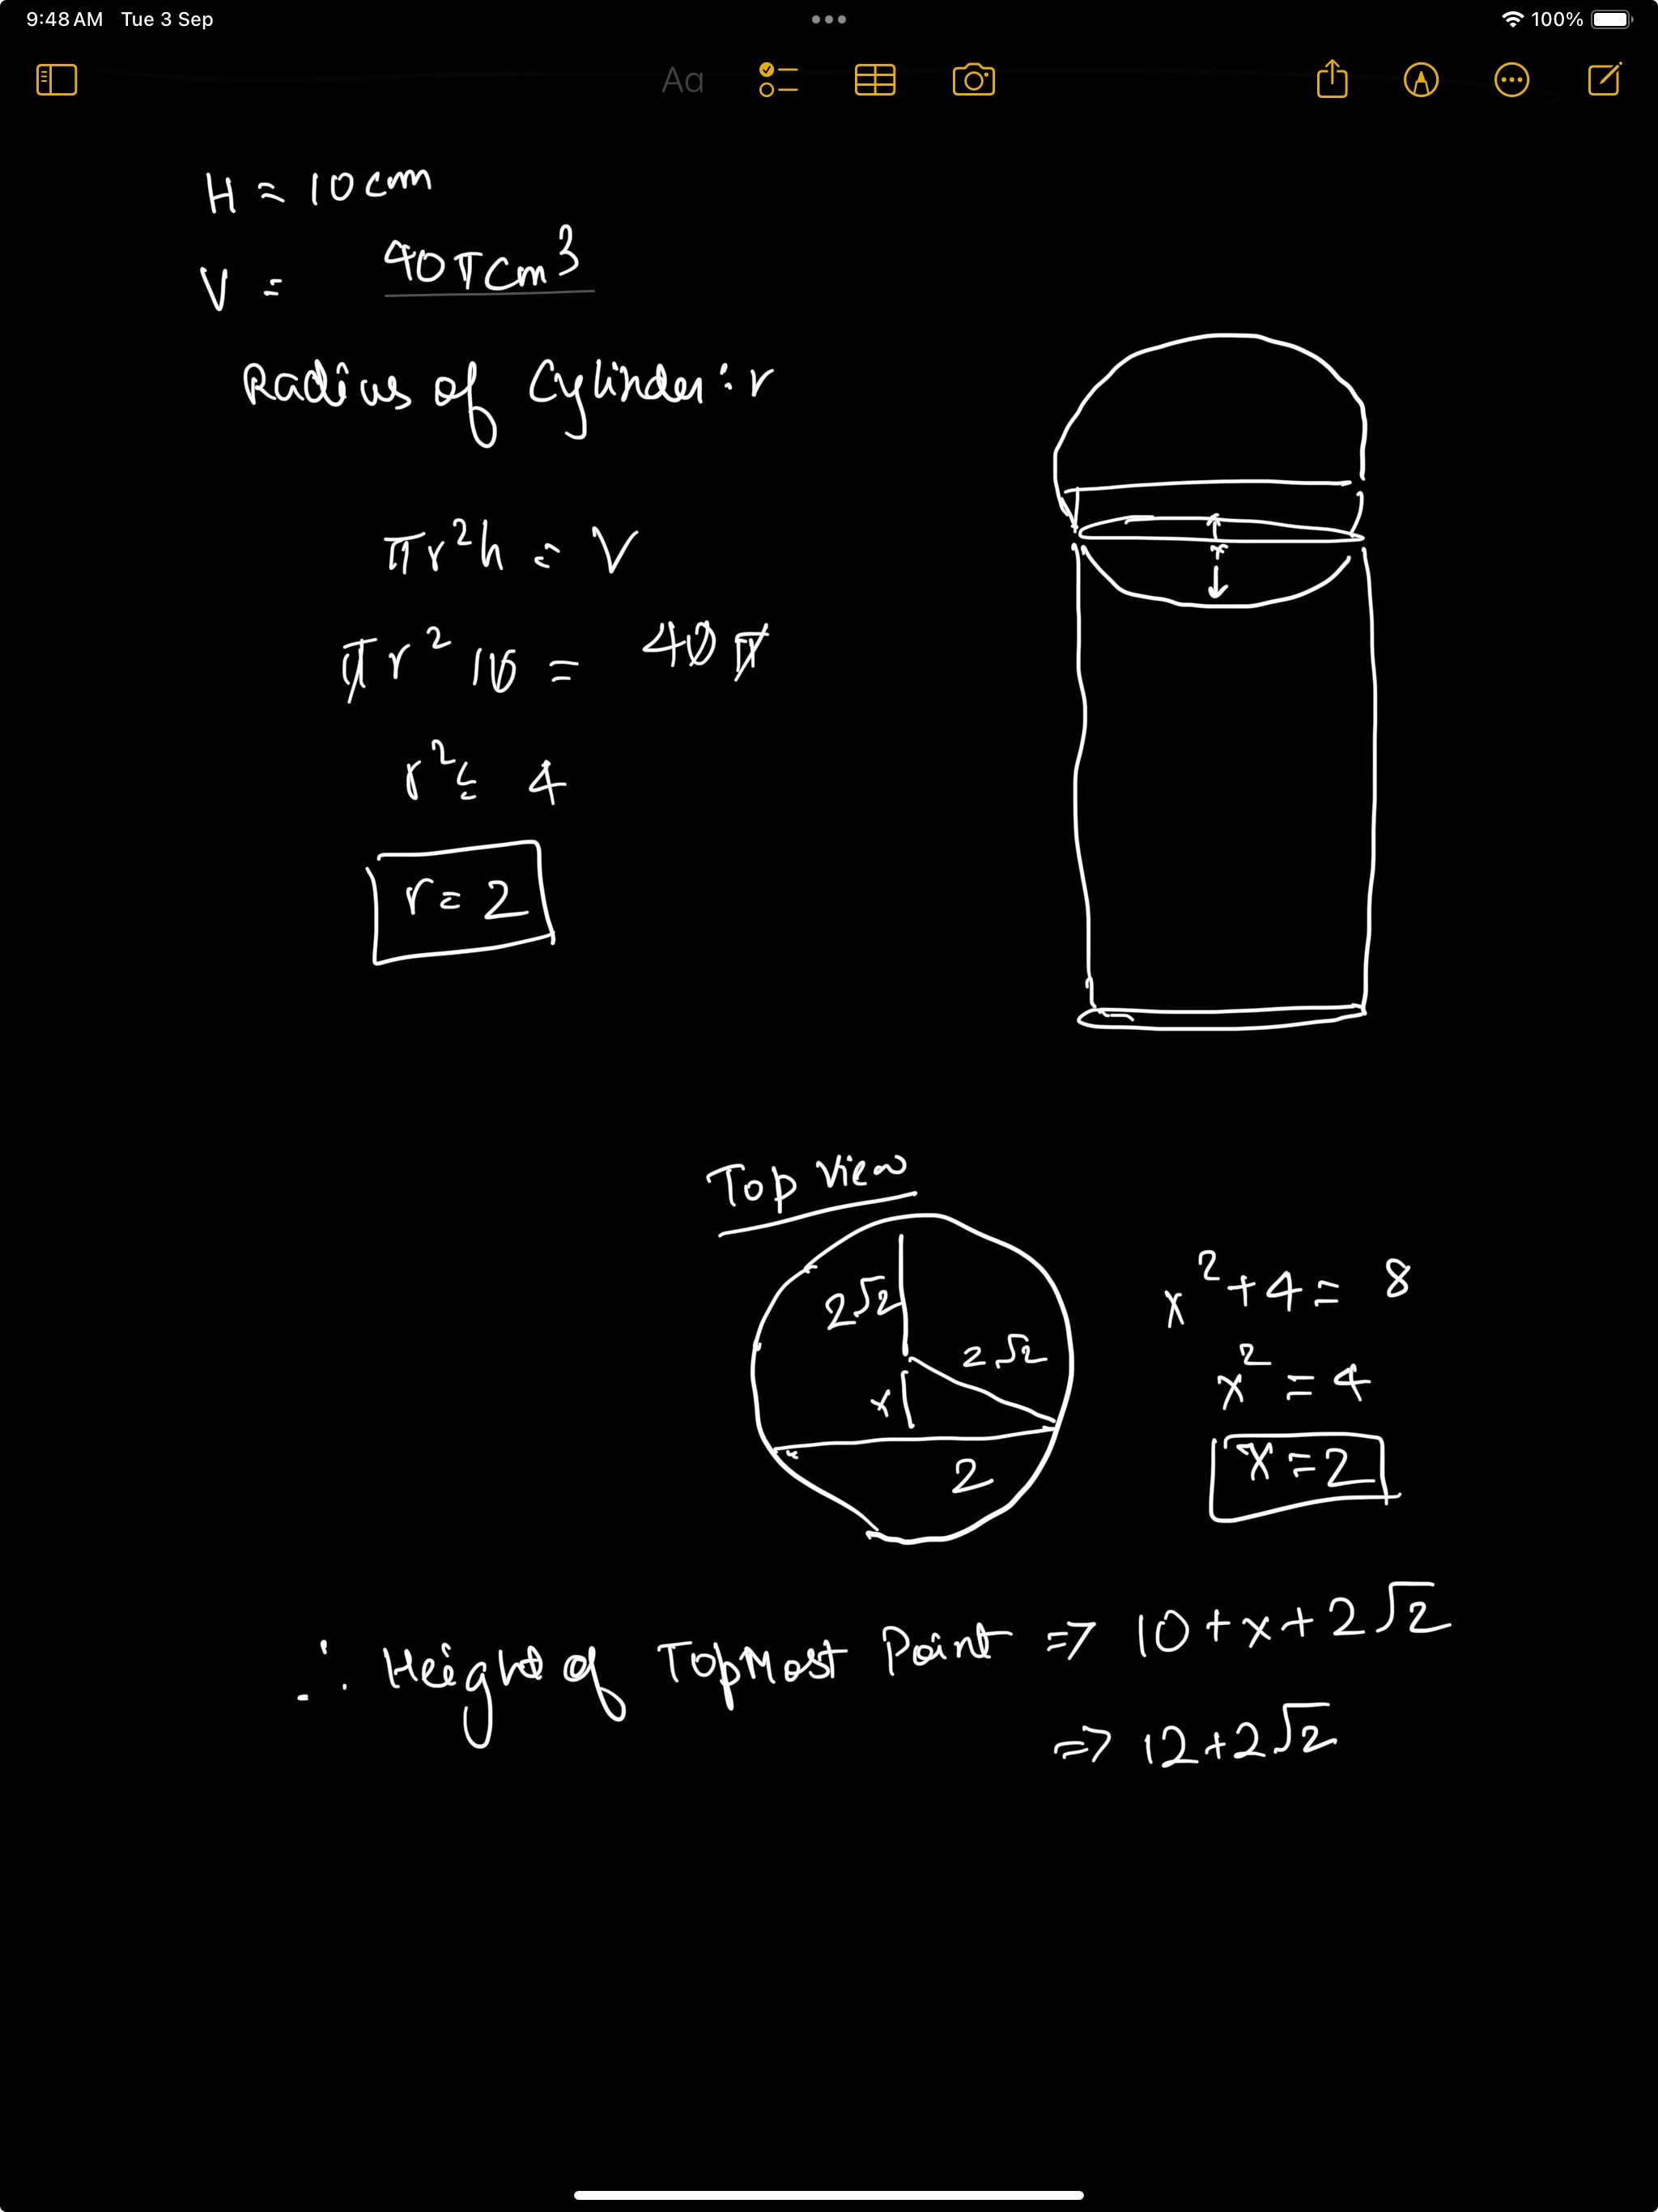 9:48 AM Tue 3 Sep
100%
Aa
H = 10 cm
V = 40πcm³
Radius of Cylinder: r
πr²h = V
πr²10 = 40π
r² = 4
r = 2
r
Top View
2√2
2√2
x
2
x² + 4 = 8
x² = 4
x = 2
∴ Height of TopMost Point ⇒ 10 + x + 2√2
⇒ 12 + 2√2